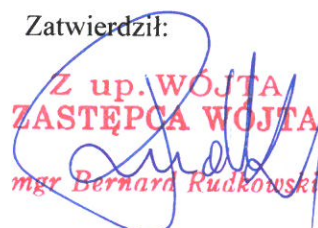 Zatwierdził:
Z up. WÓJTA
ZASTĘPCA WÓJTA
mgr Bernard Rudkowski